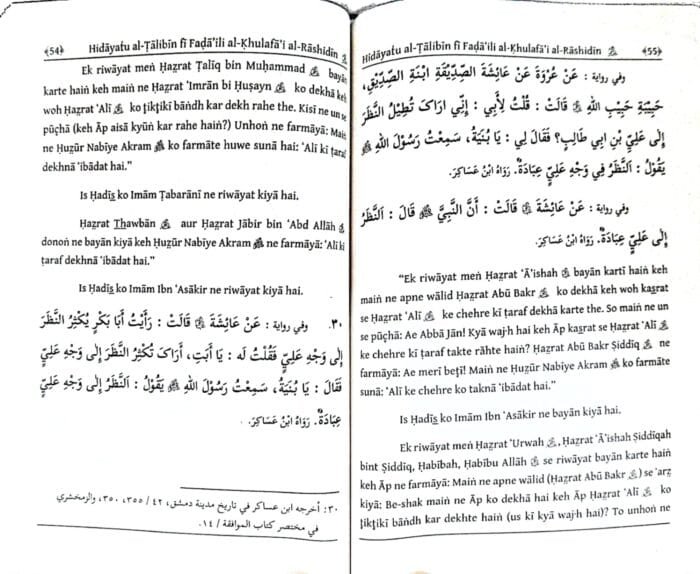 ﴾54﴿ Hidāyatu al-Ṭālibīn fī Faḍā'ili al-Khulafā'i al-Rāshidīn
Ek riwāyat meṅ Ḥaẓrat Ṭalīq bin Muḥammad bayān
karte haiṅ keh maiṅ ne Ḥaẓrat 'Imrān bi Ḥuṣayn ko dekhā keh
woh Ḥaẓrat 'Alī ko ṭikṭikī bāndh kar dekh rahe the. Kisī ne un se
pūçhā (keh Āp aisā kyūṅ kar rahe haiṅ?) Unhoṅ ne farmāyā: Maiṅ
ne Ḥuẓūr Nabīye Akram ko farmāte huwe sunā hai: 'Alī kī ṭaraf
dekhnā 'ibādat hai."
Is Ḥadīs̲ ko Imām Ṭabarānī ne riwāyat kiyā hai.
Ḥaẓrat Thawbān aur Ḥaẓrat Jābir bin 'Abd Allāh
donoṅ ne bayān kiyā keh Ḥuẓūr Nabīye Akram ne farmāyā: 'Alī kī
ṭaraf dekhnā 'ibādat hai."
Is Ḥadīs̲ ko Imām Ibn 'Asākir ne riwāyat kiyā hai.
٣٠. وفي رواية: عَنْ عَائِشَةَ ﷺ قَالَتْ: رَأَيْتُ أَبَا بَكْرٍ يُكْثِرُ النَّظَرَ
إِلَى وَجْهِ عَلِيٍّ فَقُلْتُ لَه: يَا أَبَتِ، أَرَاكَ تُكْثِرُ النَّظَرَ إِلَى وَجْهِ عَلِيٍّ
فَقَالَ: يَا بُنَيَّةُ، سَمِعْتُ رَسُوْلَ اللهِ ﷺ يَقُوْلُ: اَلنَّظَرُ إِلَى وَجْهِ عَلِيٍّ
عِبَادَةٌ. رَوَاهُ ابْنُ عَسَاكِرَ.
٣٠: أخرجه ابن عساكر في تاريخ مدينة دمشق، ٤٢/٣٥٥، ٣٥٠، والزمخشري
في مختصر كتاب الموافقة/١٤.
Hidāyatu al-Ṭālibīn fī Faḍā'ili al-Khulafā'i al-Rāshidīn ﴾55﴿
وفي رواية: عَنْ عُرْوَةَ عَنْ عَائِشَةَ الصِّدِّيْقَةِ ابْنَةِ الصِّدِّيْقِ،
حَبِيْبَةِ حَبِيْبِ اللهِ قَالَتْ: قُلْتُ لِأَبِي: إِنِّي أَرَاكَ تُطِيْلُ النَّظَرَ
إِلَى عَلِيِّ بْنِ ابِي طَالِبٍ؟ فَقَالَ لِي: يَا بُنَيَّةُ، سَمِعْتُ رَسُوْلَ اللهِ ﷺ
يَقُوْلُ: اَلنَّظَرُ فِي وَجْهِ عَلِيٍّ عِبَادَةٌ. رَوَاهُ ابْنُ عَسَاكِرَ.
وفي رواية: عَنْ عَائِشَةَ قَالَتْ: أَنَّ النَّبِيَّ ﷺ قَالَ: اَلنَّظَرُ
إِلَى عَلِيٍّ عِبَادَةٌ. رَوَاهُ ابْنُ عَسَاكِرَ.
"Ek riwāyat meṅ Ḥaẓrat 'Ā'ishah bayān kartī haiṅ keh
maiṅ ne apne wālid Ḥaẓrat Abū Bakr ko dekhā keh woh kas̲rat
se Ḥaẓrat 'Alī ke chehre kī ṭaraf dekhā karte the. So maiṅ ne un
se pūçhā: Ae Abbā Jān! Kyā waj·h hai keh Āp kas̲rat se Ḥaẓrat 'Alī
ke chehre kī ṭaraf takte rāhte haiṅ? Ḥaẓrat Abū Bakr Ṣiddīq ne
farmāyā: Ae merī beṭī! Maiṅ ne Ḥuẓūr Nabīye Akram ko farmāte
sunā: 'Alī ke chehre ko taknā 'ibādat hai."
Is Ḥadīs̲ ko Imām Ibn 'Asākir ne bayān kiyā hai.
Ek riwāyat meṅ Ḥaẓrat 'Urwah , Ḥaẓrat 'Ā'ishah Ṣiddīqah
bint Ṣiddīq, Ḥabībah, Ḥabību Allāh se riwāyat bayān karte haiṅ
keh Āp ne farmāyā: Maiṅ ne apne wālid (Ḥaẓrat Abū Bakr ) se 'arẓ
kiyā: Be-shak maiṅ ne Āp ko dekhā hai keh Āp Ḥaẓrat 'Alī ko
ṭikṭikī bāndh kar dekhte haiṅ (us kī kyā waj·h hai)? To unhoṅ ne